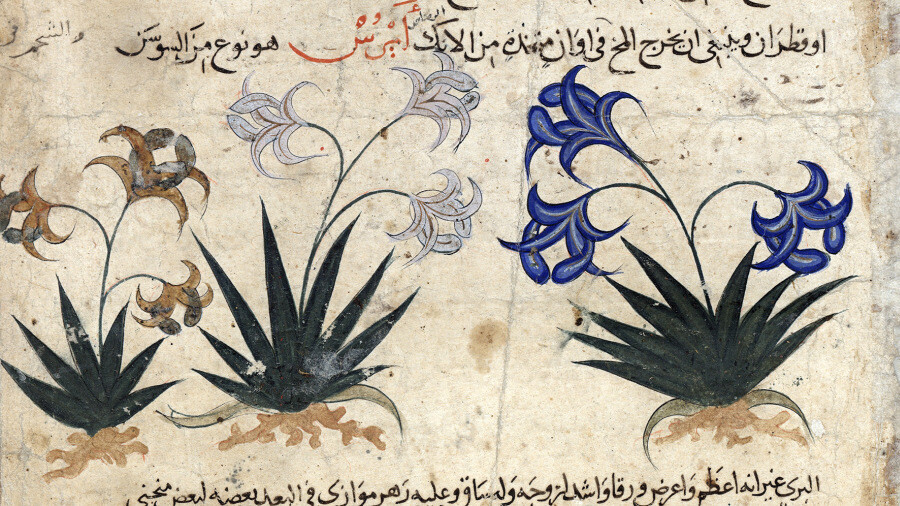 او قطران وينبغي ان يخرج المخ في اوان متخذة من الانك أَيْرُسْ هو نوع من السوسن
والشحم في
البري غير انه اعظم واعرض ورقا واشد لزوجة وله ساق وعليه زهر موازي في البعد بعضه لبعض منحني